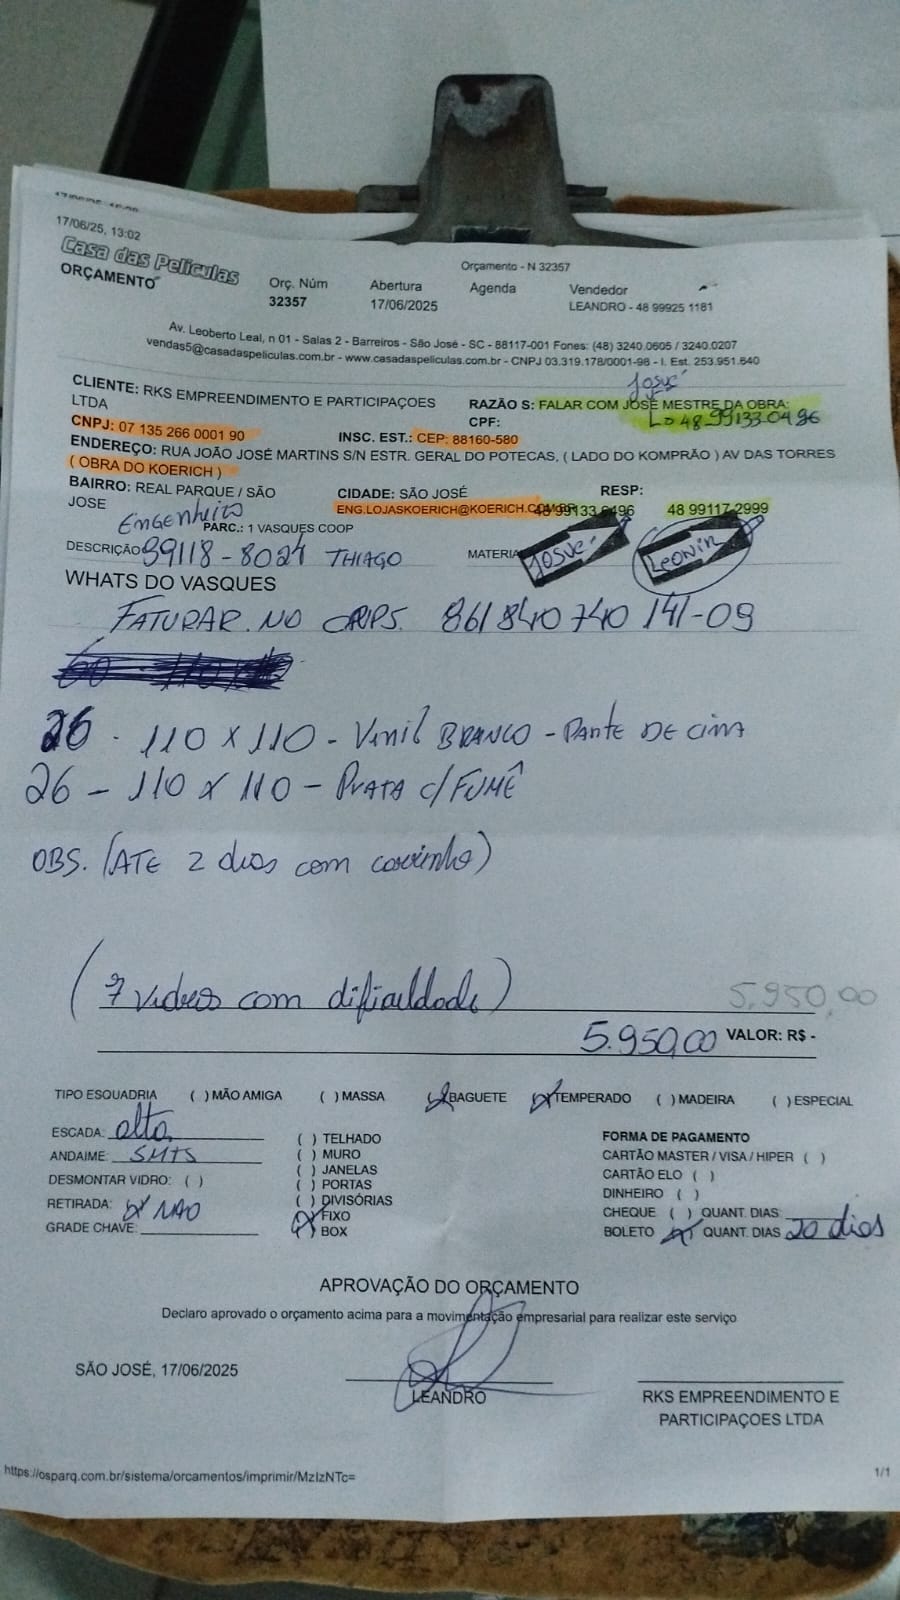 17/06/25, 13:02
Orçamento - N 32357
Casa das Películas
ORÇAMENTO
Orç. Núm
32357
Abertura
17/06/2025
Agenda
Vendedor
LEANDRO - 48 99925 1181
Av. Leoberto Leal, n 01 - Salas 2 - Barreiros - São José - SC - 88117-001 Fones: (48) 3240.0605 / 3240.0207
vendas5@casadaspeliculas.com.br - www.casadaspeliculas.com.br - CNPJ 03.319.178/0001-98 - I. Est. 253.951.640
Josué
CLIENTE: RKS EMPREENDIMENTO E PARTICIPAÇOES LTDA
RAZÃO S: FALAR COM JOSÉ MESTRE DA OBRA:
CNPJ: 07 135 266 0001 90
INSC. EST.: CEP: 88160-580
CPF:
48 99133 0496
ENDEREÇO: RUA JOÃO JOSÉ MARTINS S/N ESTR. GERAL DO POTECAS, ( LADO DO KOMPRÃO ) AV DAS TORRES
( OBRA DO KOERICH )
BAIRRO: REAL PARQUE / SÃO JOSE
CIDADE: SÃO JOSÉ
RESP:
48 99117 2999
Engenheiro
PARC.: 1 VASQUES COOP
DESCRIÇÃO
99118-8024 THIAGO
Josué
Leonir
WHATS DO VASQUES
FATURAR NO
26 - 110 x 110 - Vinil BRANCO - PARTE DE CIMA
26 - 110 x 110 - PRATA C/ FUMÊ
OBS. (ATE 2 dias com carrinho)
(7 vidros com dificuldade)
5.950,00
5.950,00 VALOR: R$ -
TIPO ESQUADRIA ( ) MÃO AMIGA ( ) MASSA (X) BAGUETE (X) TEMPERADO ( ) MADEIRA ( ) ESPECIAL
ESCADA: alta
ANDAIME:
DESMONTAR VIDRO: ( )
RETIRADA: (X) NÃO
GRADE CHAVE:
( ) TELHADO
( ) MURO
( ) JANELAS
( ) PORTAS
( ) DIVISÓRIAS
(X) FIXO
( ) BOX
FORMA DE PAGAMENTO
CARTÃO MASTER / VISA / HIPER ( )
CARTÃO ELO ( )
DINHEIRO ( )
CHEQUE ( ) QUANT. DIAS:
BOLETO (X) QUANT. DIAS 20 dias
APROVAÇÃO DO ORÇAMENTO
Declaro aprovado o orçamento acima para a movimentação empresarial para realizar este serviço
SÃO JOSÉ, 17/06/2025
LEANDRO
RKS EMPREENDIMENTO E
PARTICIPAÇOES LTDA
https://osparq.com.br/sistema/orcamentos/imprimir/MzIzNTc=
1/1